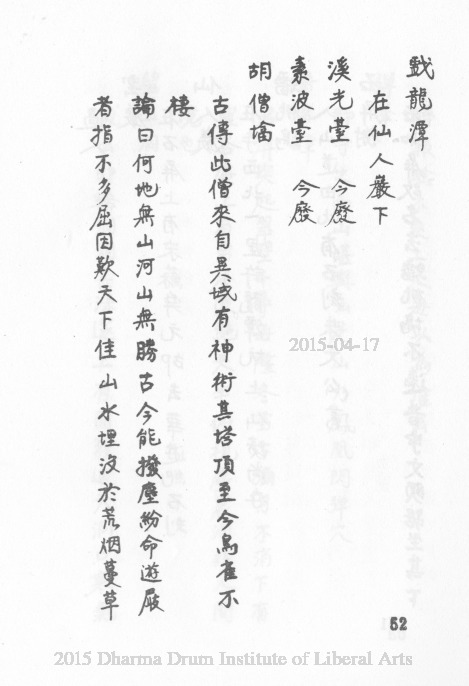 戲龍潭
在仙人巖下
溪光臺 今廢
素波臺 今廢
胡僧塔
古傳此僧來自異域有神術其塔頂至今鳥雀不
棲
論曰何地無山河山無勝古今能撥塵紛命遊屐
者指不多屈因歎天下佳山水埋沒於荒烟蔓草
2015-04-17
52
2015 Dharma Drum Institute of Liberal Arts